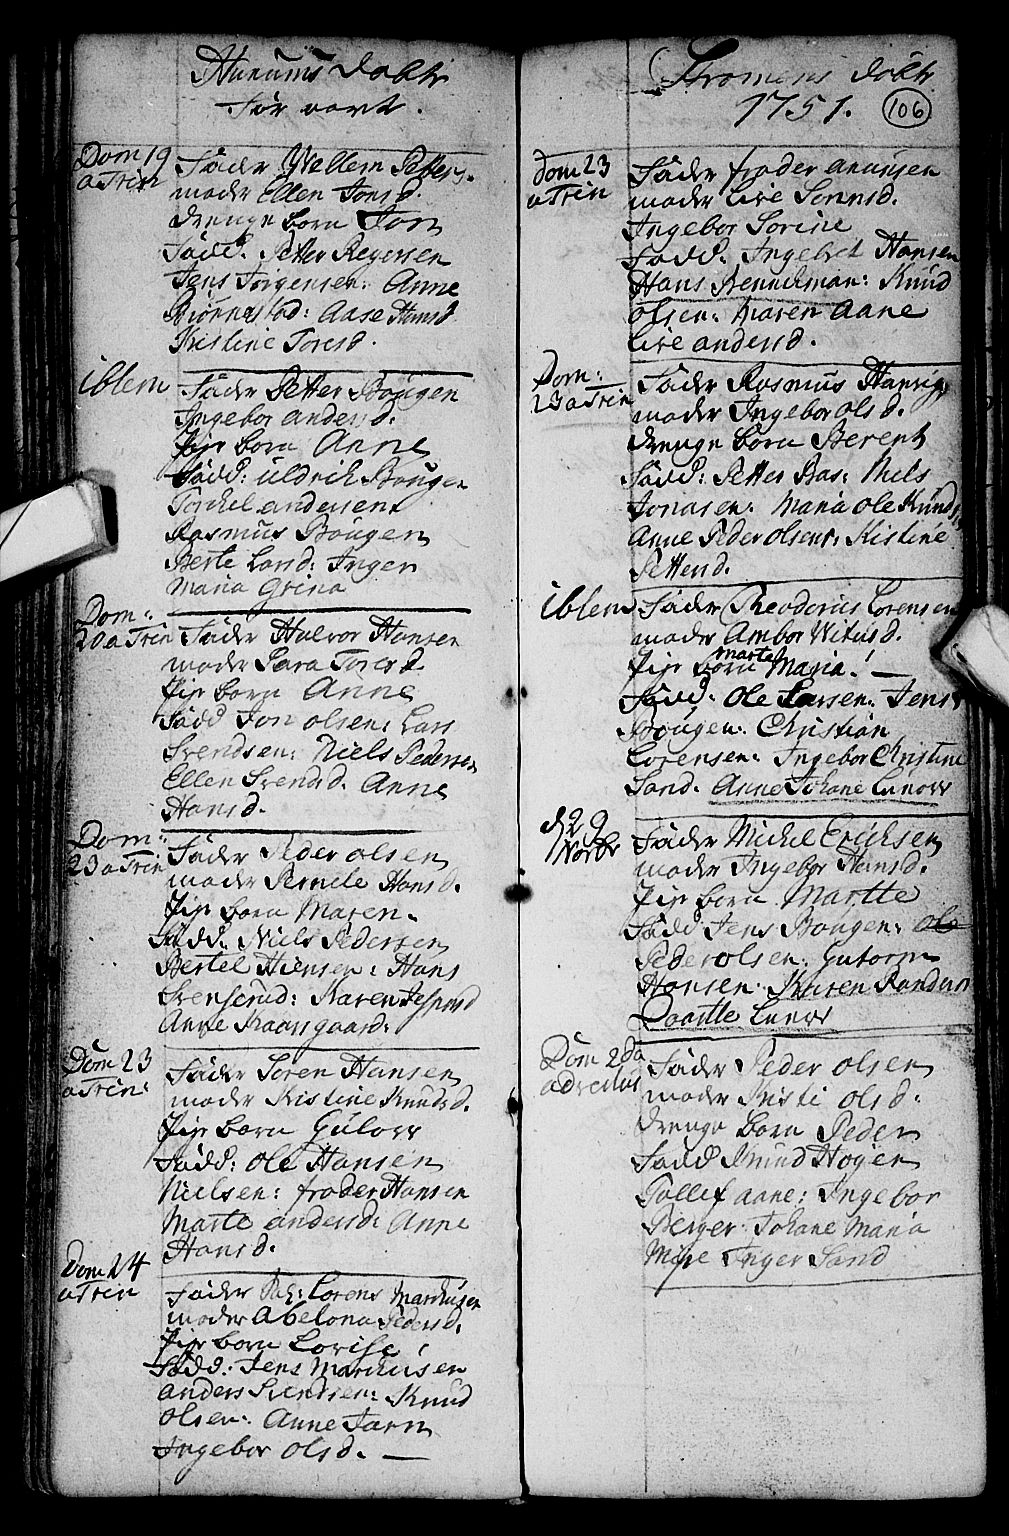 Hurums Dobte
før vart.
Dom 19
a Trin
Fader Wellem Petters.
moder Ellen Jonsd.
drenge born Jon
Fadd. Petter Regersen
Jens Jørgensen: Anne
Biørnestad: Aase Hansd
Kristine Toresd.
iblem
Fader Petter Bougen
Ingebor andersd.
Pige born Anne
Fadd: Uldrich Bougen
Torkel andersen
Rasmus Bougen
Berte Larsd: Inger
Maria Grina
Dom:
20 a Trin
Fader Halvor Hansen
moder Sara Toresd
Pige born Anne
Fadd Jon olsen: Lars
Svendsen: Niels Pedersen
Ellen Svendsd. Anne
Hansd.
Dom:
23 a Trin
Fader Peder olsen
moder Pernele Hansd.
Pige born Maren.
Fadd. Niels Pedersen
Bertel Hiensen: Hans
Svenserud: Karen Jespersd
Anne Kaarsgaard:
Dom 23
a Trin:
Fader Soren Hansen
moder Kristine Knudsd.
Pige born Gulovr
Fadd: ole Hansen
Nielsen: frader Hansen
Marte andersd: Anne
Hansd.
Dom 24
a Trin
Fader Lorens Marchusen
moder Abelona Pedersd.
Pige born Lovise
Fadd: Jens Marchusen
anders Svendsen: Knud
olsen: Anne Jarn
Ingebor olsd. —
Stromens Dobte
1751. 106
Dom 23
a Trin
Fader frader anunsen
moder Live Sonnsd.
Ingebor Sorine
Fadd. Ingebret Hansen
Hans Kennikman: Knud
olsen: Karen Aane
Live andersd.
Dom:
23 a Trin
Fader Rasmus Hansen
moder Ingebor olsd.
drenge born Berent
Fadd: Petter Bas: Niels
Jonasen: Maria ole Knuds
Anne Peder olsens: Kistine
Pettersd.
iblem
Fader Reoderius Lorensen
moder Ambor Witusd.
Pige born Marte Maria! —
Fadd. ole Larsen: Jens
Bougen: Christian
Lorensen: Ingebor Christine
Sand. Anne Johane Lunovr
d 29
Novbr
Fader Michel Erichsen
moder Ingebor Hansd.
Pige born Martte
Fadd Jens Bougen: ole
Peder olsen: Gutorm
Hansen: Karen Randun
Daartte Lunovr
Dom 2da
adventus
Fader Peder olsen
moder Kristi olsd.
drenge born Peder
Fadd Knud Høgen
Tollef aane: Ingebor
Berger Johane Maria
Møye Inger Sand